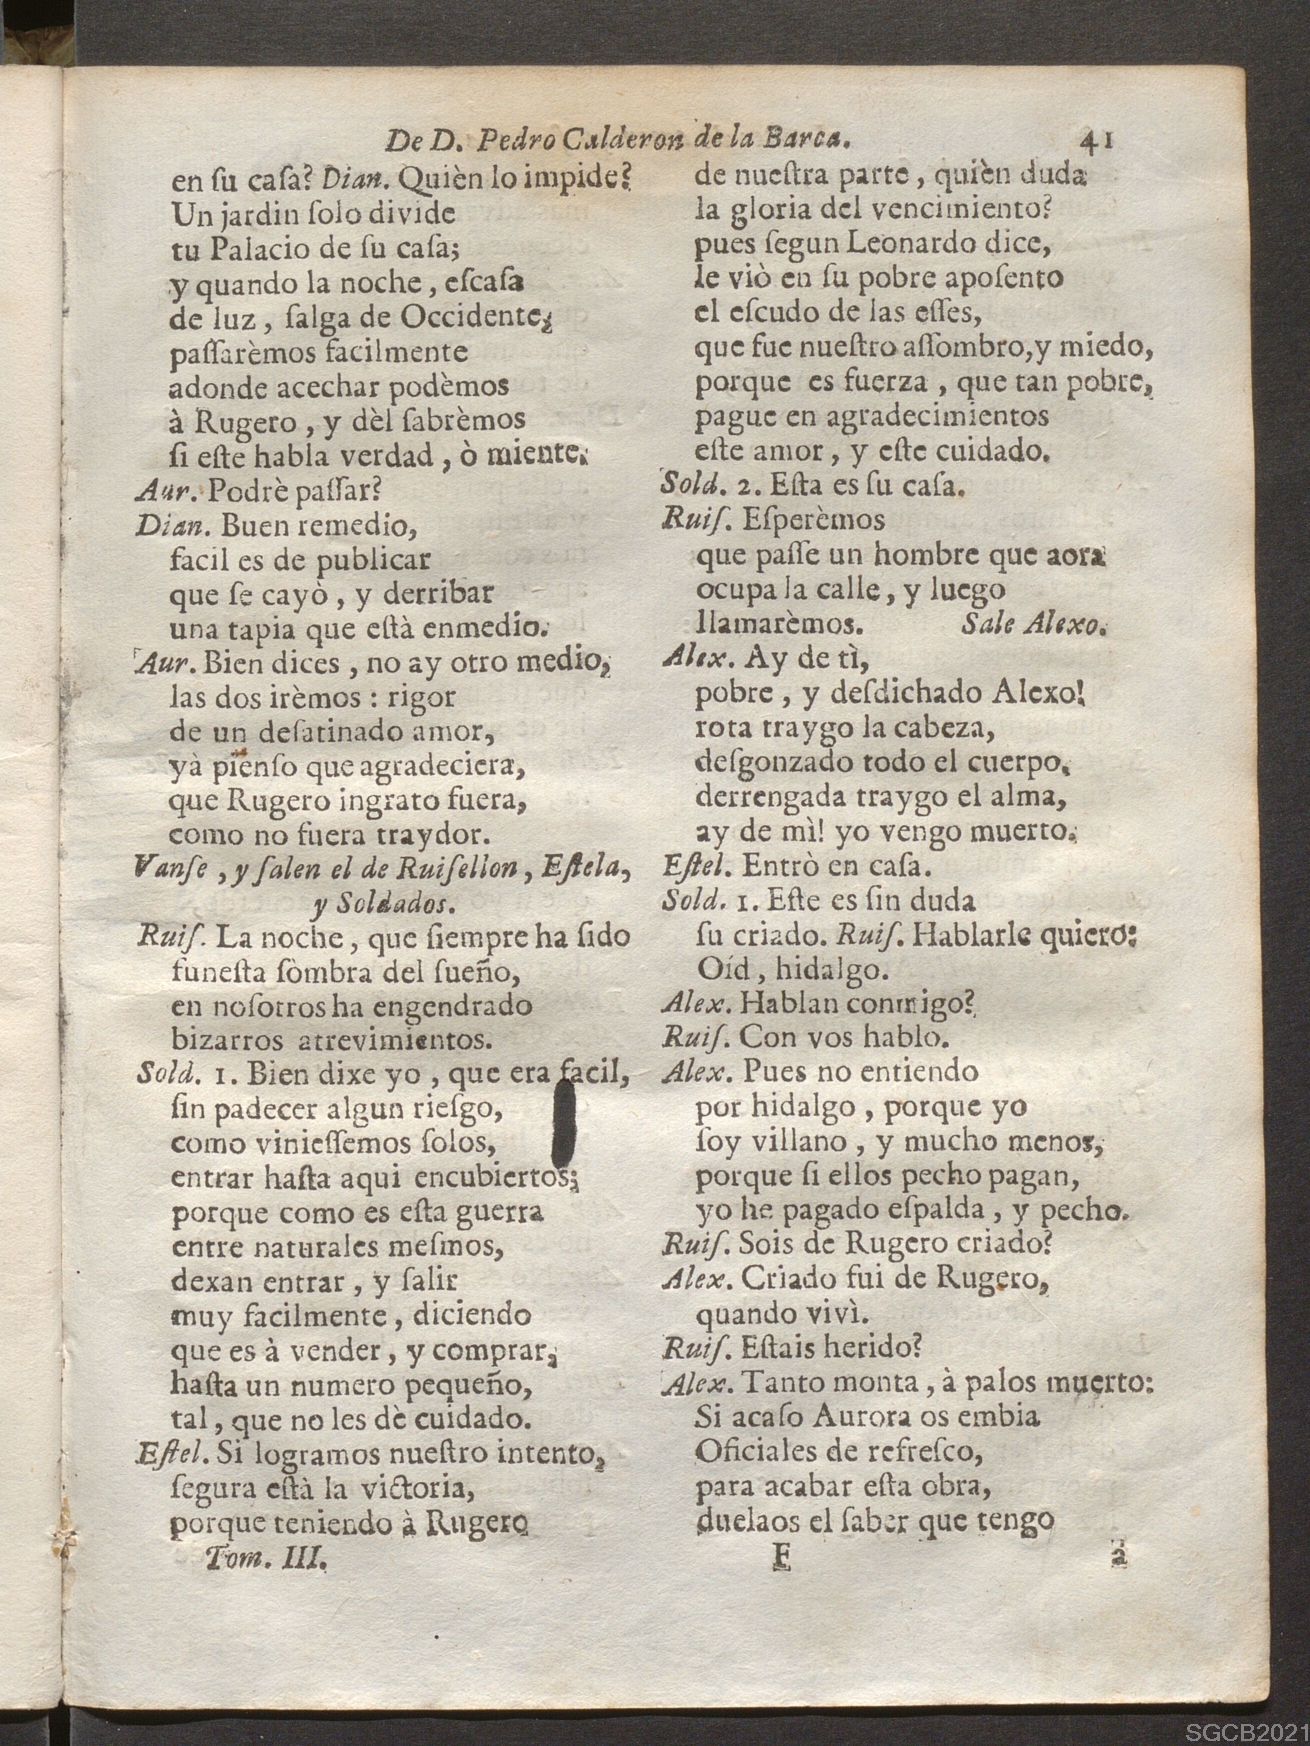 De D. Pedro Calderon de la Barca. 41
en ſu caſa? Dian. Quièn lo impide?
Un jardin ſolo divide
tu Palacio de ſu caſa;
y quando la noche, eſcaſa
de luz, ſalga de Occidente,
paſſarèmos facilmente
adonde acechar podèmos
à Rugero, y dèl ſabrèmos
ſi eſte habla verdad, ò miente.
Aur. Podrè paſſar?
Dian. Buen remedio,
facil es de publicar
que ſe cayò, y derribar
una tapia que eſtà enmedio.
Aur. Bien dices, no ay otro medio,
las dos irèmos: rigor
de un deſatinado amor,
yà pienſo que agradeciera,
que Rugero ingrato fuera,
como no fuera traydor.
Vanſe, y ſalen el de Ruiſellon, Eſtela,
y Soldados.
Ruiſ. La noche, que ſiempre ha ſido
funeſta ſombra del ſueño,
en noſotros ha engendrado
bizarros atrevimientos.
Sold. 1. Bien dixe yo, que era facil,
ſin padecer algun rieſgo,
como vinieſſemos ſolos,
entrar haſta aqui encubiertos;
porque como es eſta guerra
entre naturales meſmos,
dexan entrar, y ſalir
muy facilmente, diciendo
que es à vender, y comprar,
haſta un numero pequeño,
tal, que no les dè cuidado.
Eſtel. Si logramos nueſtro intento,
ſegura eſtà la victoria,
porque teniendo à Rugero
Tom. III.
de nueſtra parte, quièn duda
la gloria del vencimiento?
pues ſegun Leonardo dice,
le viò en ſu pobre apoſento
el eſcudo de las eſſes,
que fue nueſtro aſſombro, y miedo,
porque es fuerza, que tan pobre,
pague en agradecimientos
eſte amor, y eſte cuidado.
Sold. 2. Eſta es ſu caſa.
Ruiſ. Eſperèmos
que paſſe un hombre que aora
ocupa la calle, y luego
llamarèmos. Sale Alexo.
Alex. Ay de tì,
pobre, y deſdichado Alexo!
rota traygo la cabeza,
deſgonzado todo el cuerpo,
derrengada traygo el alma,
ay de mì! yo vengo muerto.
Eſtel. Entrò en caſa.
Sold. 1. Eſte es ſin duda
ſu criado. Ruiſ. Hablarle quiero:
Oíd, hidalgo.
Alex. Hablan conmigo?
Ruiſ. Con vos hablo.
Alex. Pues no entiendo
por hidalgo, porque yo
ſoy villano, y mucho menos,
porque ſi ellos pecho pagan,
yo he pagado eſpalda, y pecho.
Ruiſ. Sois de Rugero criado?
Alex. Criado fui de Rugero,
quando vivì.
Ruiſ. Eſtais herido?
Alex. Tanto monta, à palos muerto:
Si acaſo Aurora os embia
Oficiales de refreſco,
para acabar eſta obra,
duelaos el ſaber que tengo
F à
SGCB2021